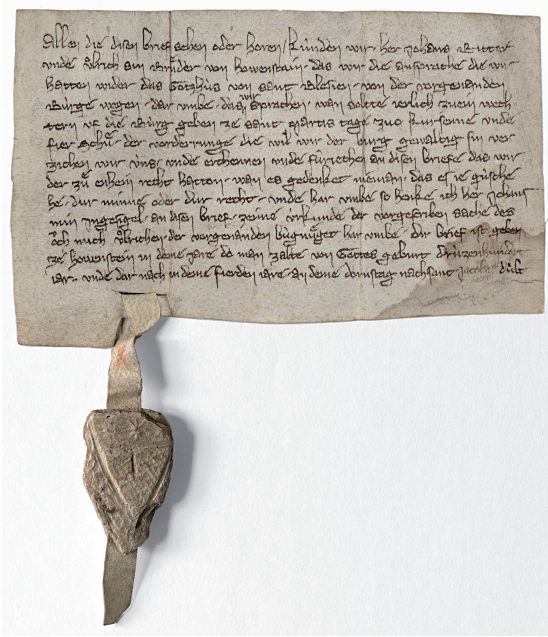 Allen die disen brief sehen oder hoͤren / kuͥnden wir · her Johans Ritter
vnde Uͦlrich sin Bruͦder von howenstain · das wir die ansprache die wir
hatten wider das Gotzhus von sant Blesien · von der vorgenanden
Burge wegen · dar vmbe · das wir sprachen · man solte ierlich zwen
tern vf die Burg geben ze sant Martis tage vnde
fier Schuͦ · der vorderunge die wil wir der burg gewaltig sin ver
zichen wir vns · vnde erchennen vnde an disen briefe das wir
der zuͦ enhein recht hatton · wan es gedenket nieman · das es ie
he · dur minne oder dur recht · vnde har vmbe so henke ich her Johans
min Ingesigel an disen brief · zeime vrkunde der vorgescriben sache des
oͮch mich Uͦlrichen der vorgenanden har vmbe · dir brief ist geben
ze howenstein in deme iare do man zalte von Gottes geburt druͥzenhundert
iar · vnde dar nach in deme fierden iare an deme donrstag nach sant Jacobs